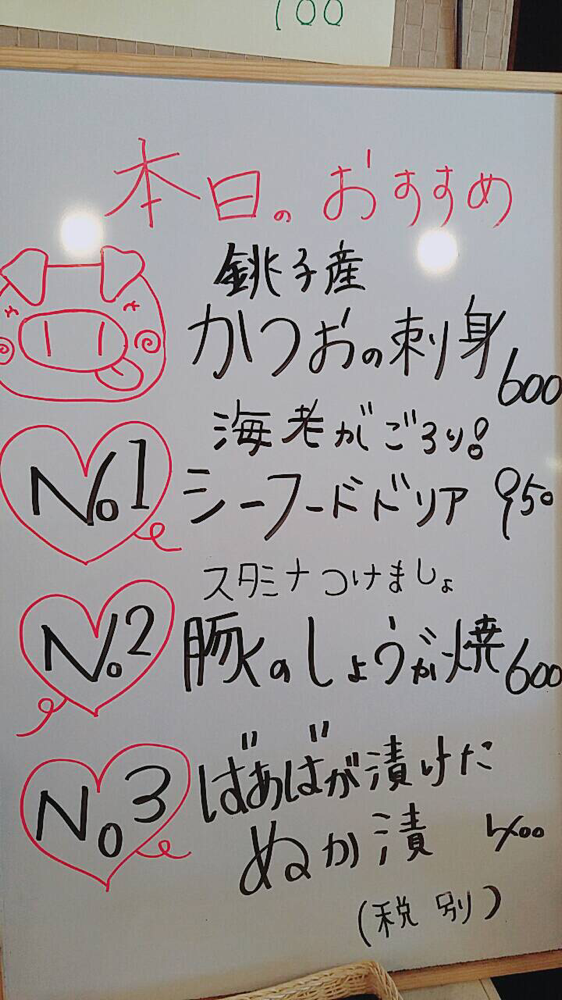 100
本日のおすすめ
銚子産
かつおの刺身 600
海老がごろり!
No.1 シーフードドリア 950
スタミナつけましょ
No.2 豚のしょうが焼 600
No.3 ばあばが漬けた
ぬか漬 400
(税別)